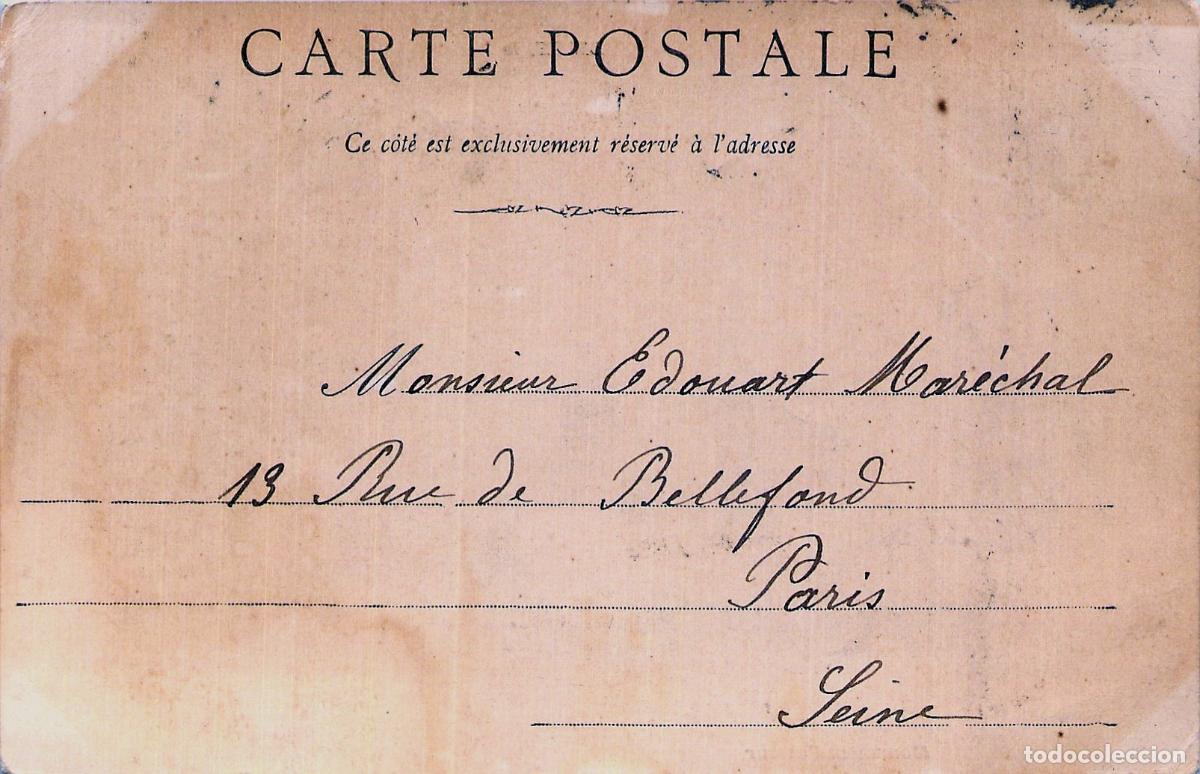 CARTE POSTALE
Ce côté est exclusivement réservé à l'adresse
Monsieur Edouart Maréchal
13 Rue de Bellefond
Paris
Seine
todocoleccion